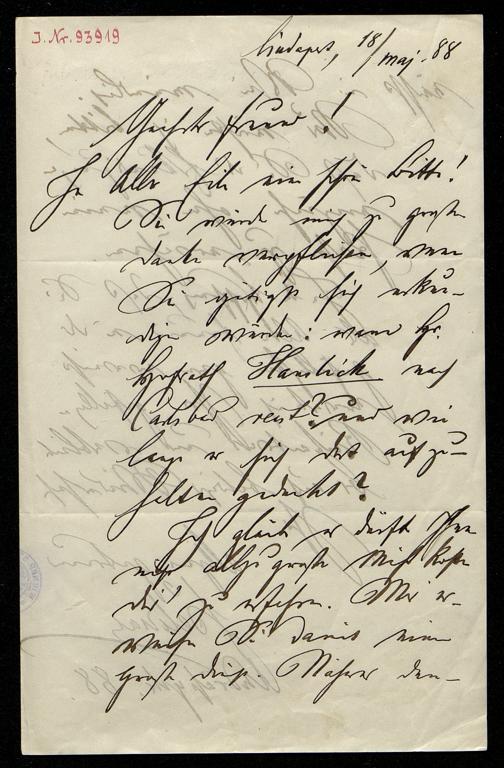 J. Nr. 93919
Budapest, 18/Maj. 88
Geehrter Freund!
In Aller Eile eine schöne Bitte!
Sie würden mich zu großem
Danke verpflichten, wenn
Sie gütigst sich erkun-
digen würden: wann Hr.
Hofrath Hanslick nach
Carlsbad reist? und wie
lange er sich dort aufzu-
halten gedenkt?
Ich glaube es dürfte Ihnen
nicht allzu große Mühe kosten
dies zu erfahren. Mir er-
weisen Sie damit einen
großen Dienst. Näheres dar-